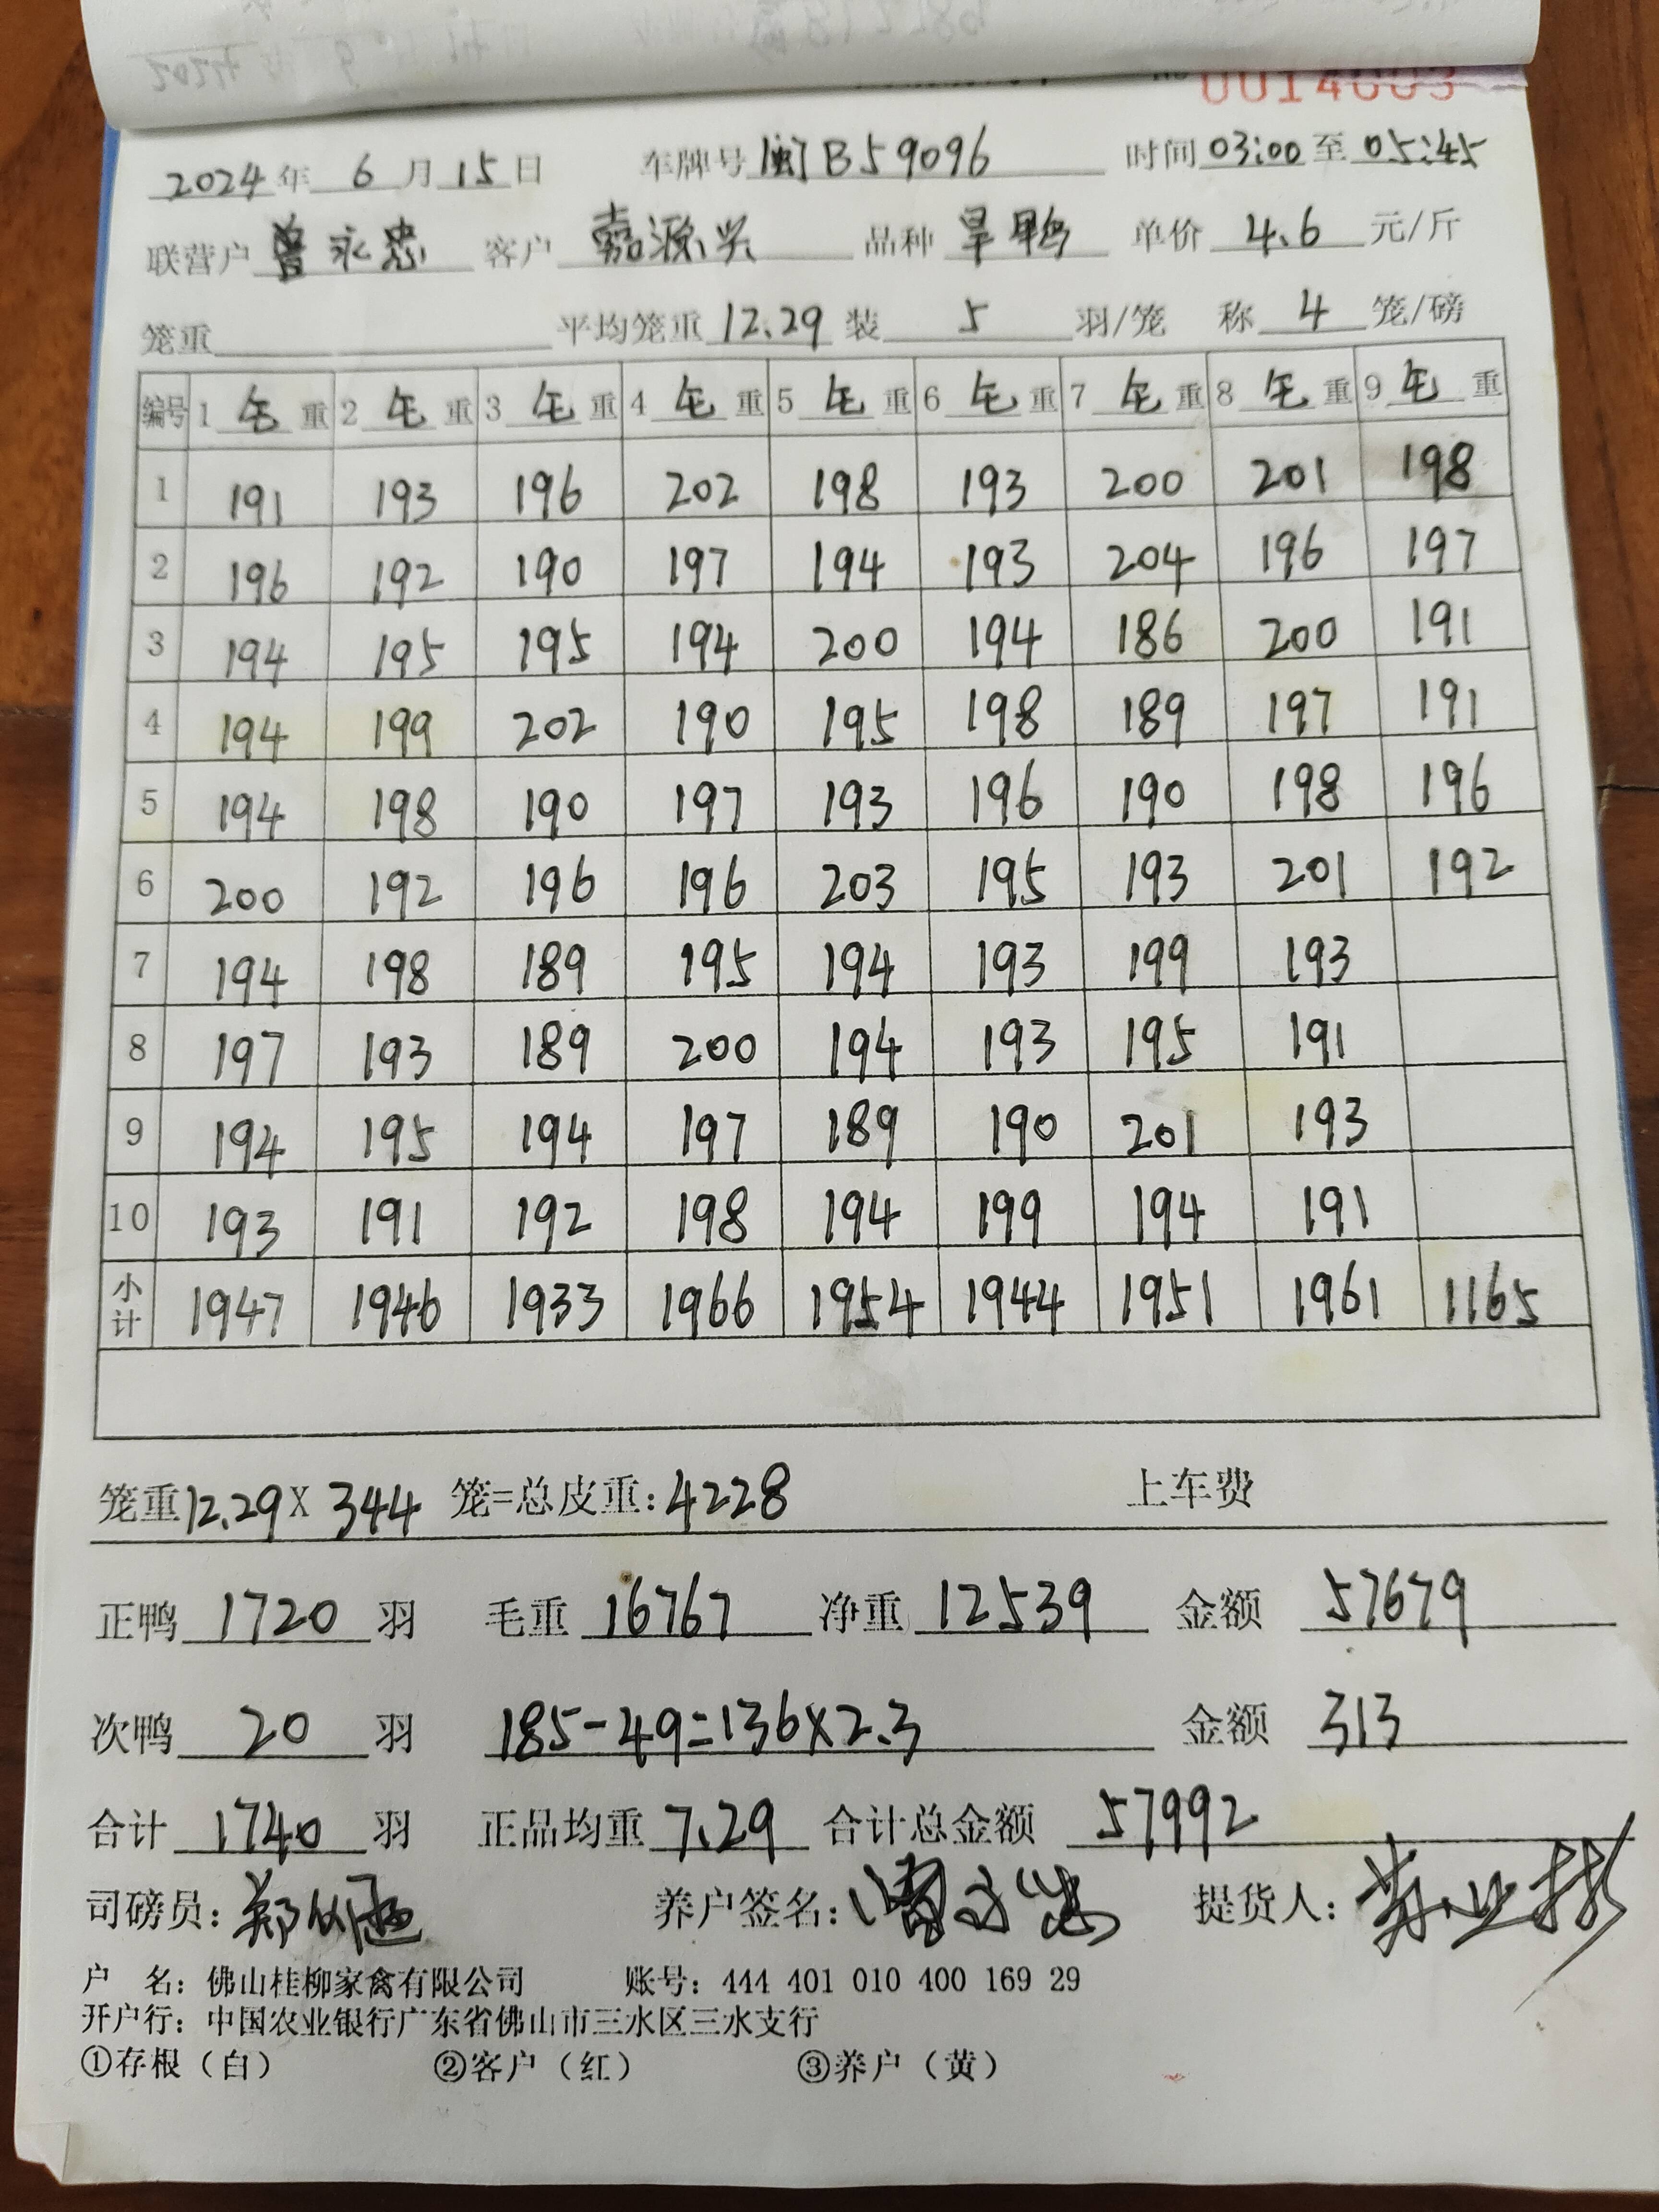 0014003
2024年 6 月 15 日 车牌号 闽B59096 时间 03:00 至 05:45
联营户 曾永忠 客户 嘉源兴 品种 旱鸭 单价 4.6 元/斤
笼重 平均笼重 12.29 装 5 羽/笼 称 4 笼/磅
编号 1 毛 重 2 毛 重 3 毛 重 4 毛 重 5 毛 重 6 毛 重 7 毛 重 8 毛 重 9 毛 重
1 191 193 196 202 198 193 200 201 198
2 196 192 190 197 194 193 204 196 197
3 194 195 195 194 200 194 186 200 191
4 194 199 202 190 195 198 189 197 191
5 194 198 190 197 193 196 190 198 196
6 200 192 196 196 203 195 193 201 192
7 194 198 189 195 194 193 199 193
8 197 193 189 200 194 193 195 191
9 194 195 194 197 189 190 201 193
10 193 191 192 198 194 199 194 191
小计 1947 1946 1933 1966 1954 1944 1951 1961 1165
笼重12.29X 344 笼=总皮重:4228 上车费
正鸭 1720 羽 毛重 16767 净重 12539 金额 57679
次鸭 20 羽 185-49=136X2.3 金额 313
合计 1740 羽 正品均重 7.29 合计总金额 57992
司磅员: 养户签名: 提货人:
户 名: 佛山桂柳家禽有限公司 账号: 444 401 010 400 169 29
开户行: 中国农业银行广东省佛山市三水区三水支行
①存根（白） ②客户（红） ③养户（黄）